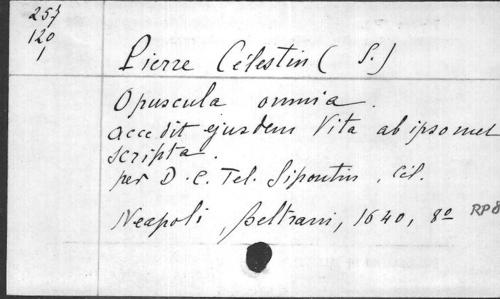 257
120
1
Pierre Célestin (S.)
Opuscula omnia.
accedit ejusdem Vita ab ipsomet
scripta.
per D. C. Tel. Sipontin. Cel.
Neapoli, Beltrani, 1640, 8º RP8